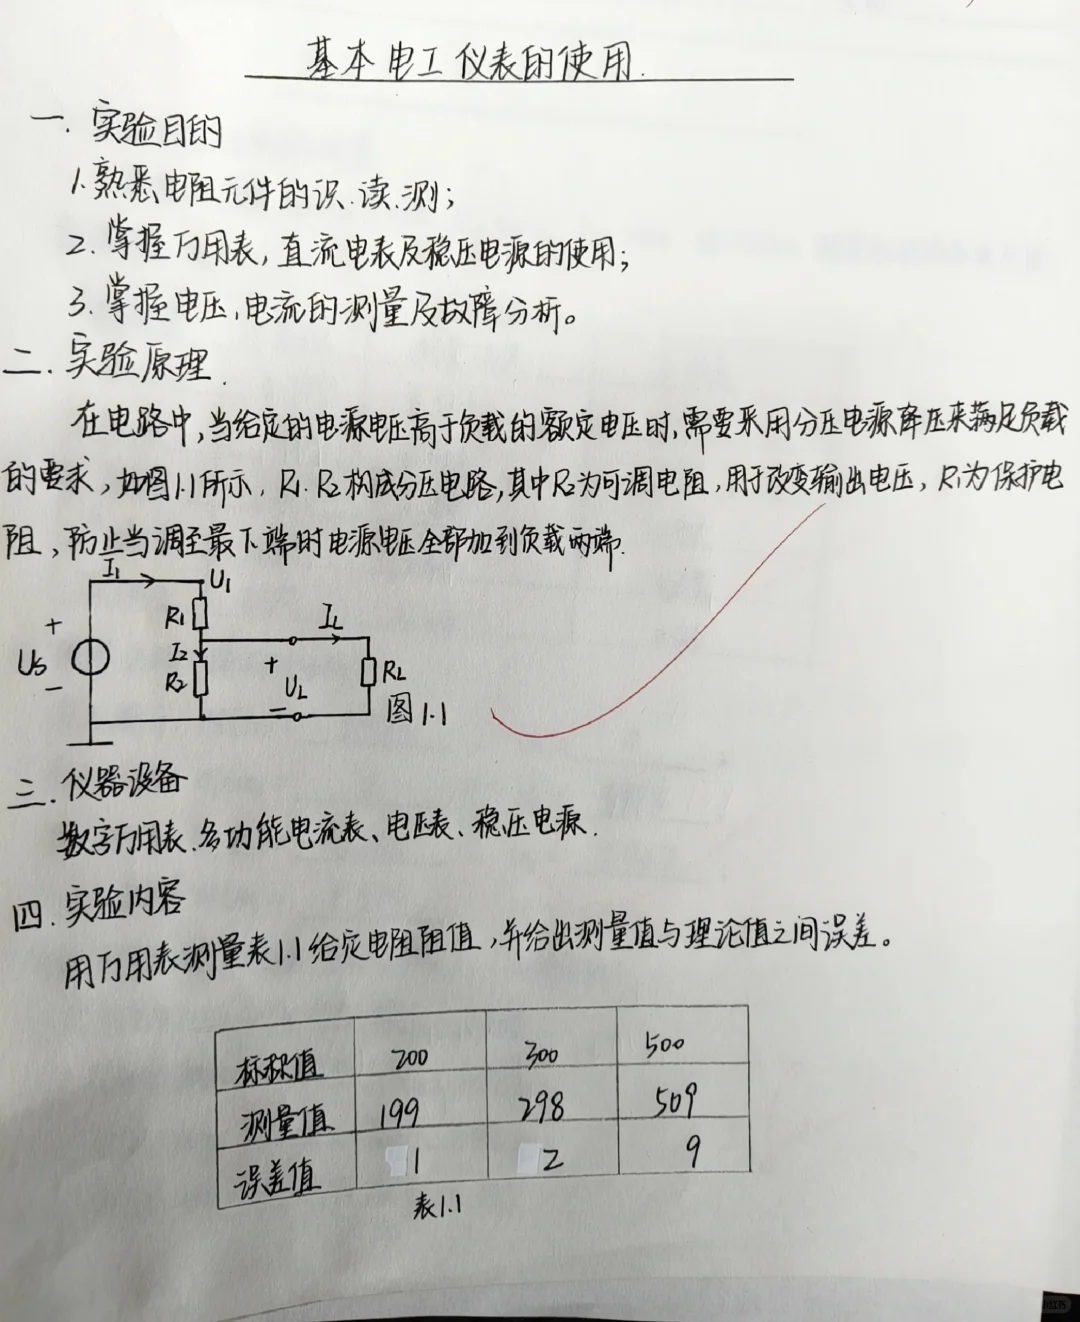 基本电工仪表的使用.
一.实验目的
1.熟悉电阻元件的识.读.测;
2.掌握万用表,直流电表及稳压电源的使用;
3.掌握电压,电流的测量及故障分析。
二.实验原理.
在电路中,当给定的电源电压高于负载的额定电压时,需要采用分压电源降压来满足负载
的要求,如图1.1所示,R1.R2构成分压电路,其中R2为可调电阻,用于改变输出电压,R1为保护电
阻,防止当调至最下端时电源电压全部加到负载两端.
I1 U1
R1 IL
+ I2
US R2 + RL
− UL
− 图1.1
三.仪器设备
数字万用表.多功能电流表、电压表、稳压电源.
四.实验内容
用万用表测量表1.1给定电阻阻值,并给出测量值与理论值之间误差。
标称值 200 300 500
测量值 199 298 509
误差值 1 2 9
表1.1